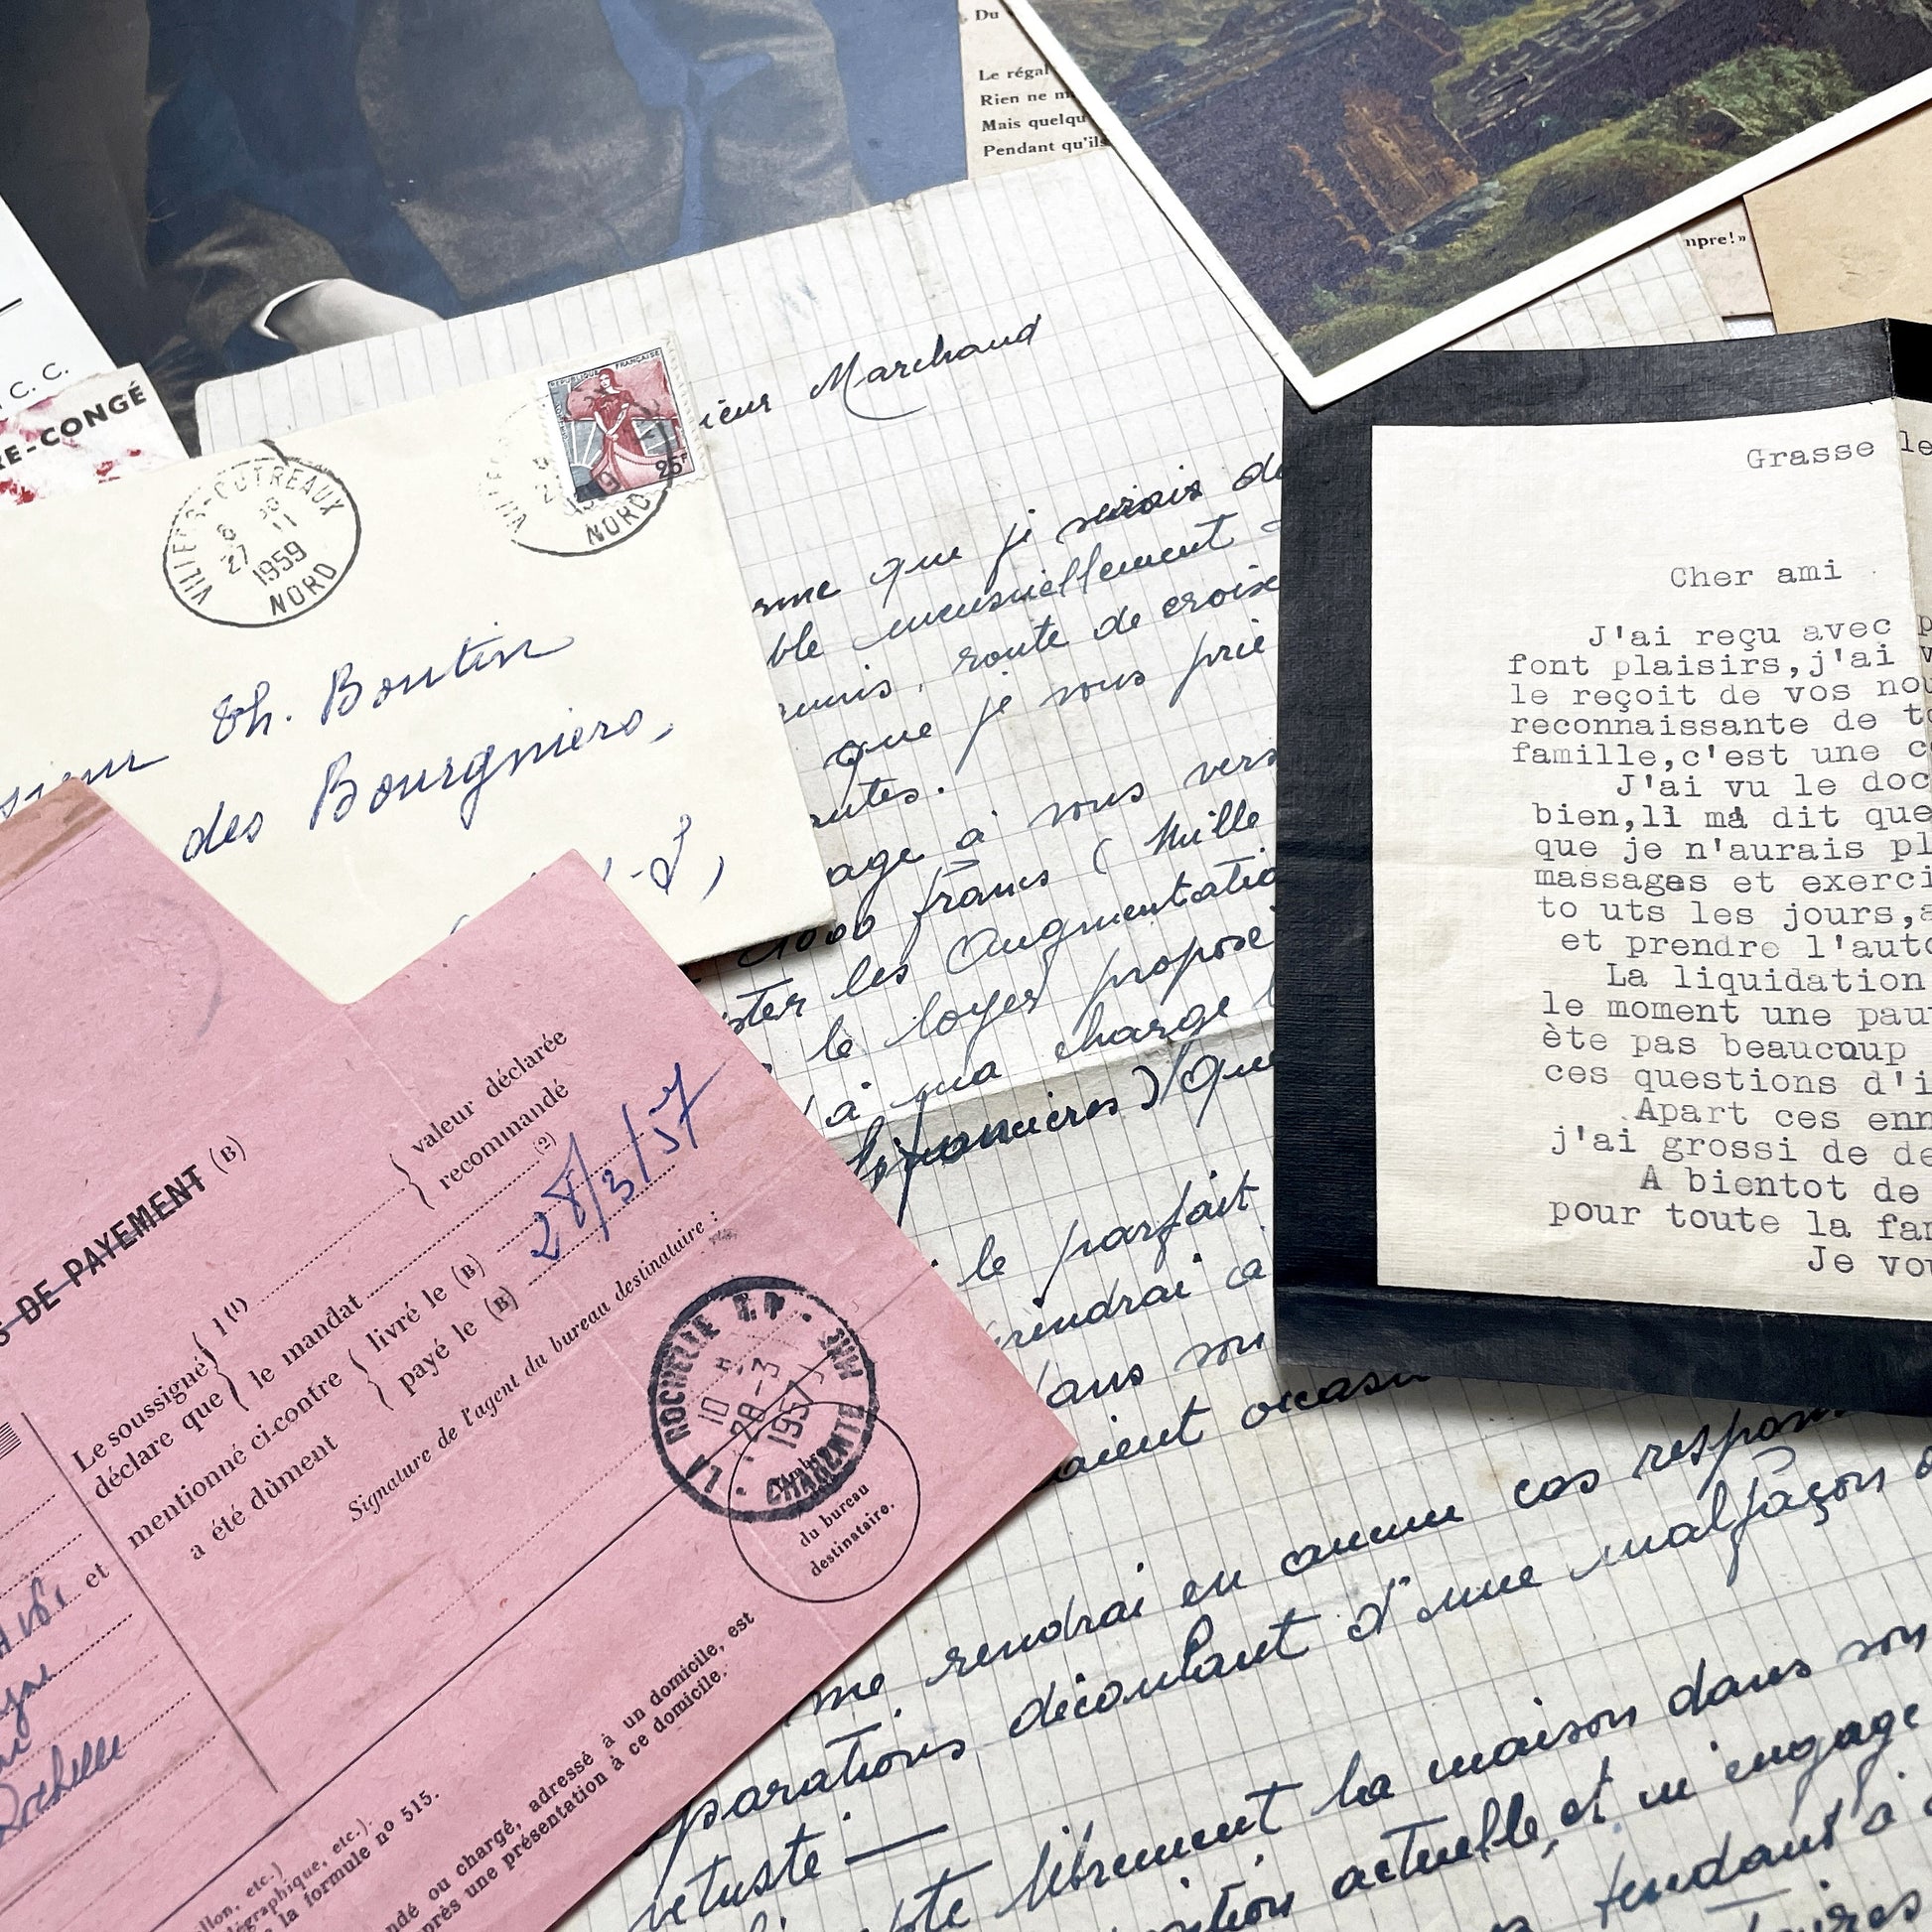 Du
Le régal
Rien ne m
Mais quelqu
Pendant qu'ils
mpre!»
C. C.
RE-CONGÉ
VILLERS-OUTREAUX
27 11
1959
NORD
REPUBLIQUE FRANÇAISE
25F
NORD
Th. Boutin
des Bourgniers,
ieur Marchand
que je serais
ble mensuellement
route de croix
que je vous prie
age à vous vers
1000 francs ( Mille
ter les Augmentatio
le loyer proposé
à ma charge
Que
le parfait
dans son
aient occasi
me rendrai en aucun cas respon
parations découlant d'une malfaçon
vetusté —
pte librement la maison dans son
sition actuelle, et m'engage
tendant à
Grasse le
Cher ami
J'ai reçu avec p
font plaisirs,j'ai v
le reçoit de vos nou
reconnaissante de to
famille,c'est une c
J'ai vu le doc
bien,il má dit que
que je n'aurais pl
massages et exerci
to uts les jours,a
et prendre l'auto
La liquidation
le moment une pau
ète pas beaucoup
ces questions d'i
Apart ces enn
j'ai grossi de de
A bientot de
pour toute la fam
Je vou
S DE PAYEMENT (B)
valeur déclarée
recommandé
Le soussigné
déclare que
l (1)
le mandat (2)
mentionné ci-contre
a été dûment
livré le (B)
payé le (B)
28/3/57
Signature de l'agent du bureau destinataire :
LA ROCHELLE R.P.
10
28-3
1957
CHARENTE MME
Timbre
du bureau
destinataire.
et
Rochelle
llon, etc.)
égraphique, etc.).
la formule nº 515.
ndé ou chargé, adressé à un domicile, est
près une présentation à ce domicile.